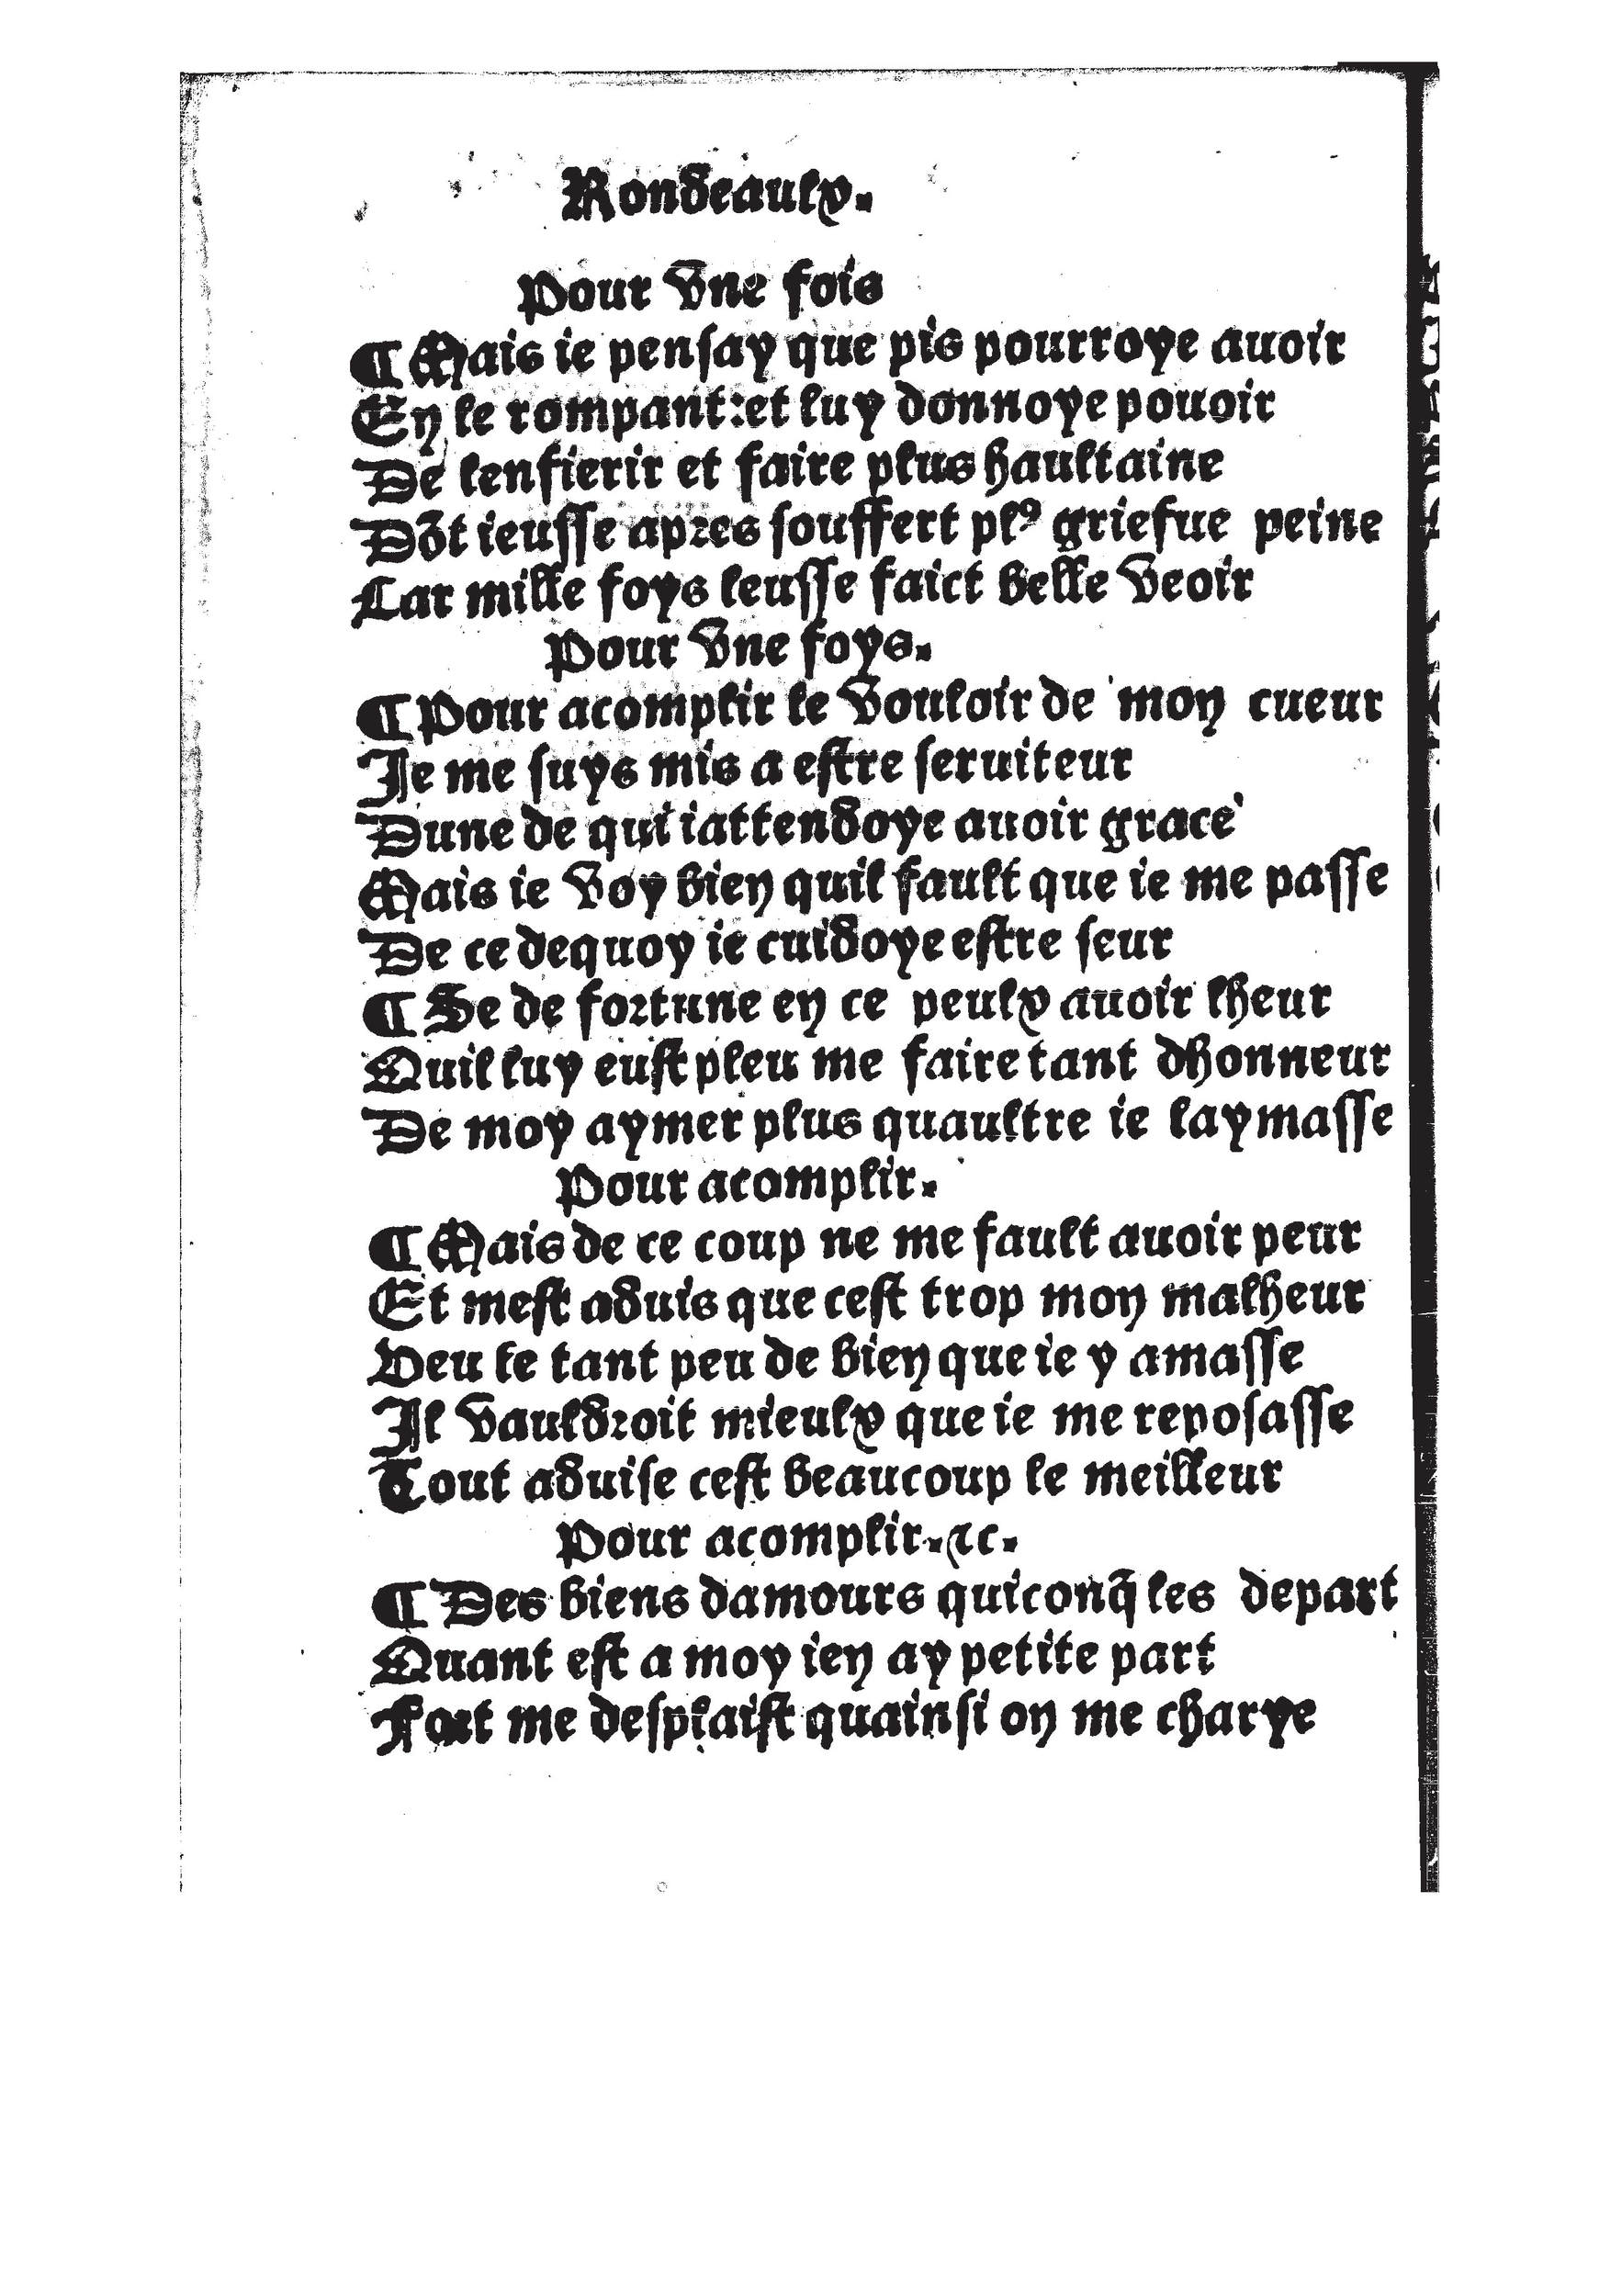 Rondeaulx.
Pour vne fois
¶ Mais ie penſay que pis pourroye auoir
En le rompant:et luy donnoye pouoir
De lenfierir et faire plus haultaine
Dōt ieuſſe apꝛes ſouffert plꝰ griefue peine
Car mille foys leuſſe faict belle veoir
Pour vne foys.
¶ Pour acomplir le vouloir de mon cueur
Je me ſuys mis a eſtre ſeruiteur
Dune de qui iattendoye auoir grace
Mais ie voy bien quil fault que ie me paſſe
De ce dequoy ie cuidoye eſtre ſeur
¶ Se de foꝛtune en ce peulx auoir lheur
Quil luy euſt pleu me faire tant dhonneur
De moy aymer plus quaultre ie laymaſſe
Pour acomplir.
¶ Mais de ce coup ne me fault auoir peur
Et meſt aduis que ceſt trop mon malheur
Veu le tant peu de bien que ie y amaſſe
Il vauldꝛoit mieulx que ie me repoſaſſe
Tout aduiſe ceſt beaucoup le meilleur
Pour acomplir.⁊c.
¶ Des biens damours quiconq̄ les depart
Quant eſt a moy ien ay petite part
Foꝛt me deſplaiſt quainſi on me charye